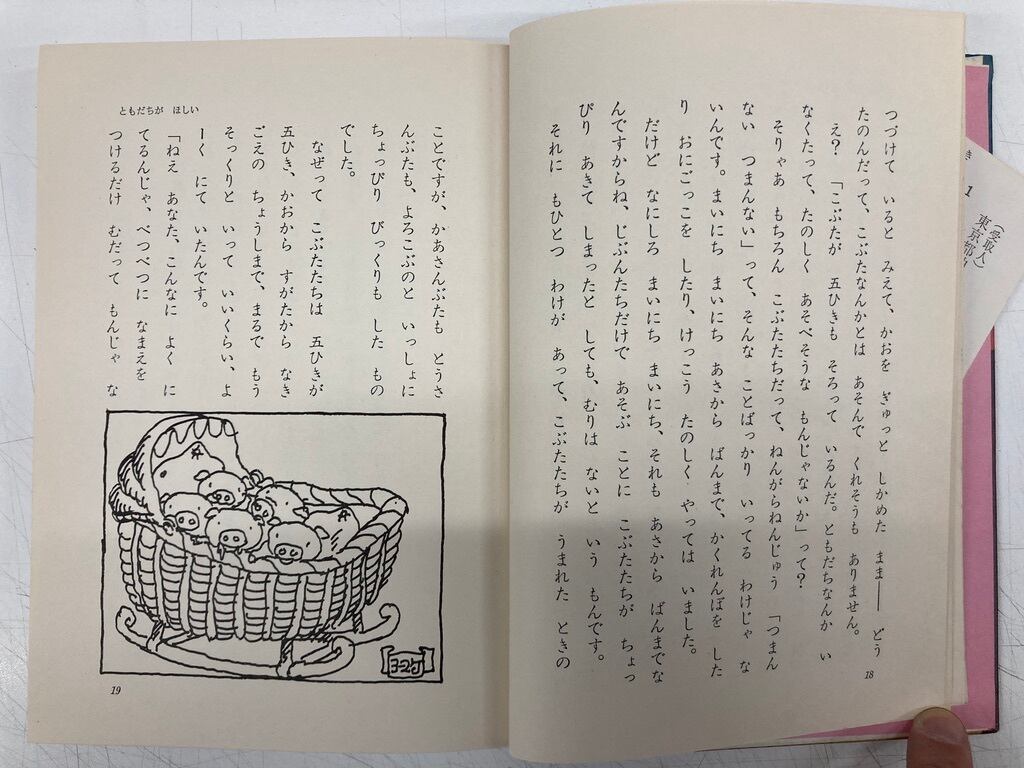 つづけて いると みえて、かおを ぎゅっと しかめた まま── どう
たのんだって、こぶたなんかとは あそんで くれそうも ありません。
え? 「こぶたが 五ひきも そろって いるんだ。ともだちなんか い
なくたって、たのしく あそべそうな もんじゃないか」って?
そりゃあ もちろん こぶたたちだって、ねんがらねんじゅう 「つまん
ない つまんない」って、そんな ことばっかり いってる わけじゃ な
いんです。まいにち まいにち あさから ばんまで、かくれんぼを した
り おにごっこを したり、けっこう たのしく やっては いました。
だけど なにしろ まいにち まいにち、それも あさから ばんまでな
んですからね、じぶんたちだけで あそぶ ことに こぶたたちが ちょっ
ぴり あきて しまったと しても、むりは ないと いう もんです。
それに もひとつ わけが あって、こぶたたちが うまれた ときの
18
ともだちが ほしい
ことですが、かあさんぶたも とうさ
んぶたも、よろこぶのと いっしょに
ちょっぴり びっくりも した もの
でした。
なぜって こぶたたちは 五ひきが
五ひき、かおから すがたから なき
ごえの ちょうしまで、まるで もう
そっくりと いって いいくらい、よ
ーく にて いたんです。
「ねえ あなた、こんなに よく に
てるんじゃ、べつべつに なまえを
つけるだけ むだって もんじゃ な
ヨースケ
19
き
1
(受取人)
東京都